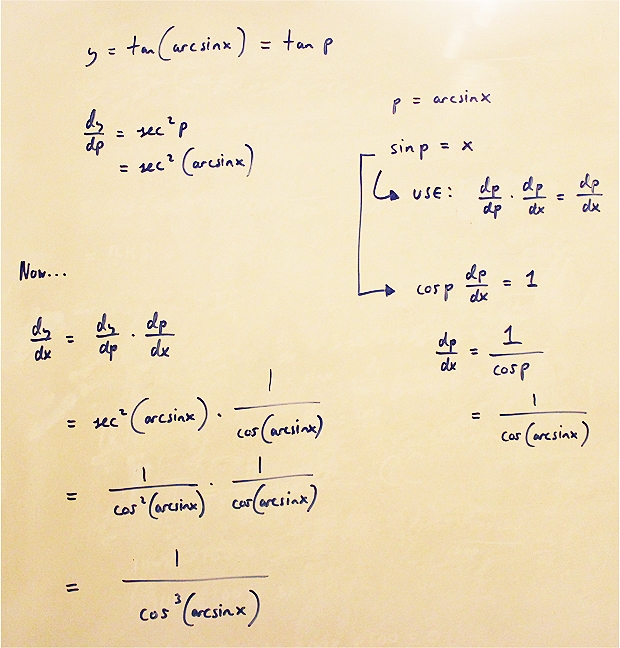 y = tan(arcsinx) = tan p
dy/dp = sec²p
= sec²(arcsinx)
p = arcsinx
sinp = x
USE: dp/dp · dp/dx = dp/dx
cosp dp/dx = 1
dp/dx = 1/cosp
= 1/cos(arcsinx)
Now...
dy/dx = dy/dp · dp/dx
= sec²(arcsinx) · 1/cos(arcsinx)
= 1/cos²(arcsinx) · 1/cos(arcsinx)
= 1/cos³(arcsinx)